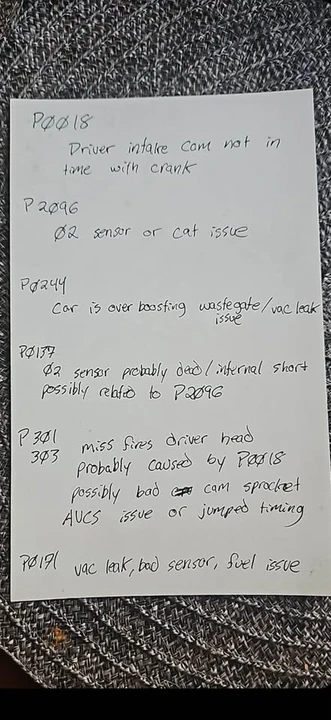 PØØ18
Driver intake cam not in
time with crank
P2096
Ø2 sensor or cat issue
PØ244
Car is over boosting wastegate/vac leak
issue
PØ137
Ø2 sensor probably dead/internal short
possibly related to P2096
P301
303
miss fires driver head
probably caused by PØØ18
possibly bad cam sprocket
AVCS issue or jumped timing
PØ171 vac leak, bad sensor, fuel issue